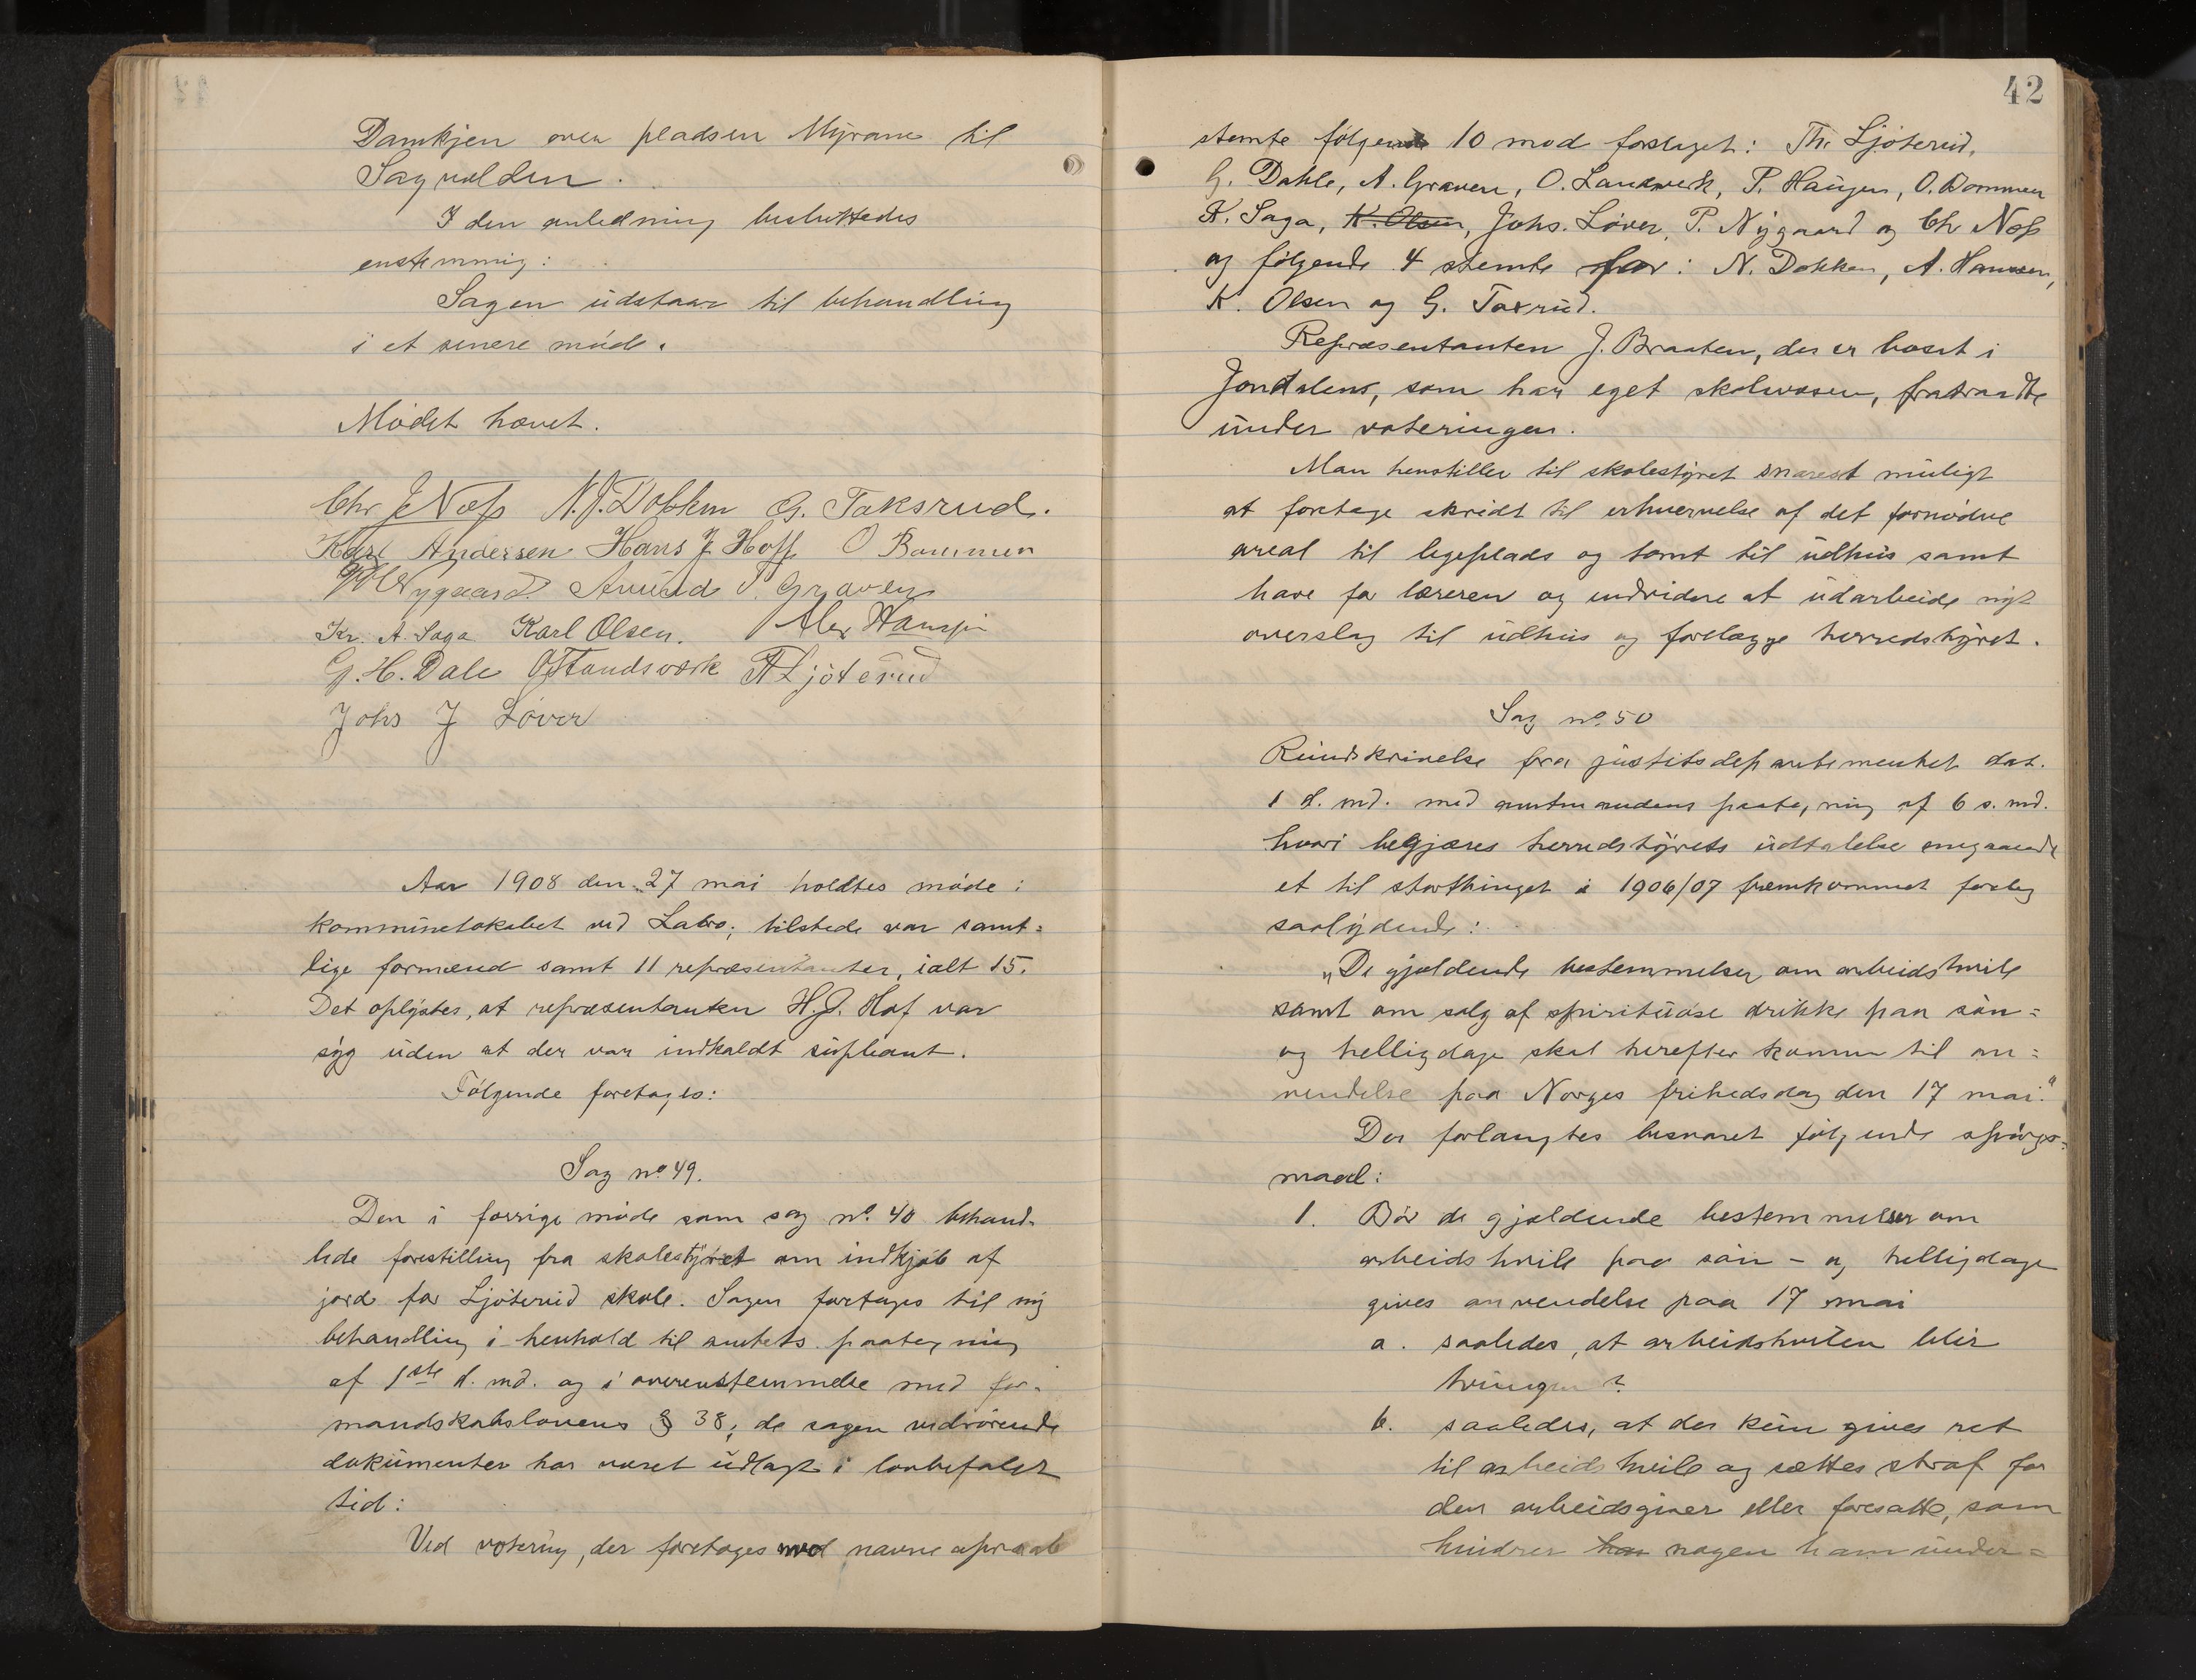 Damkjen over pladsen Myrane til
Sagvolden.
I den anledning besluttedes
enstemmig:
Sagen udstaar til behandling
i et senere møde.
Mødet hævet.
Chr J Næss N.J. Dokken G. Taksrud.
Karl Andersen Hans J Hoff O Bommen
P Nygaard. Amund P. Graven
Kr. A. Saga Karl Olsen. Alex Hansen
G. H. Dale O Landsværk Th Ljøterud
Johs J Løver
Aar 1908 den 27 mai holdtes møde i
kommunelokalet ved Labro; tilstede var samt=
lige formænd samt 11 repræsentanter, ialt 15.
Det oplystes, at repræsentanten H.J. Hof var
syg uden at der var indkaldt supleant.
Følgende foretoges:
Sag no. 49.
Den i forrige møde som sag no. 40 behand-
lede forestilling fra skolestyret om indkjøb af
jord for Ljøterud skole. Sagen foretages til ny
behandling i henhold til amtets paategning
af 1ste d. md. og i overenstemmelse med for-
mandskabslovens § 38; de sagen vedrørende
dokumenter har været udlagt i lovbefalet
tid:
Ved votering, der foretoges med navneopraab
42
stemte følgende 10 mod forslaget: Th. Ljøterud,
G. Dahle, A. Graven, O. Landsverk, P. Haugen, O. Bommen
K. Saga, K. Olsen, Johs. Løver, P. Nygaard og Chr Næss
og følgende 4 stemte for: N. Dokken, A. Hanssen,
K. Olsen og G. Taxrud.
Repræsentanten J. Braaten, der er bosat i
Jondalens, som har eget skolevæsen, fratraadte
under voteringen.
Man henstiller til skolestyret snarest muligt
at foretage skridt til erhvervelse af det fornødne
areal til legeplads og tomt til udhus samt
have for læreren og endvidere at udarbeide nyt
overslag til udhus og forelægge herredstyret.
Sag no. 50
Rundskrivelse fra justitsdepartementet dat.
1 d. md. med amtmandens paategning af 6 s. md.
hvori begjæres herredstyrets udtalelse angaaende
et til storthinget i 1906/07 fremkommet forslag
saalydende:
„De gjældende bestemmelser om arbeidshvile
samt om salg af spirituøse drikke paa søn=
og helligdage skal herefter komme til an=
vendelse paa Norges frihedsdag den 17 mai."
Der forlangtes besvaret følgende spørgs=
maal:
1. Bør de gjældende bestemmelser om
arbeidshvile paa søn- og helligdage
gives anvendelse paa 17 mai
a. saaledes, at arbeidshvilen blir
tvungen?
b. saaledes, at der kun gives ret
til arbeidshvile og sættes straf for
den arbeidsgiver eller foresatte, som
hindrer han nogen ham under=